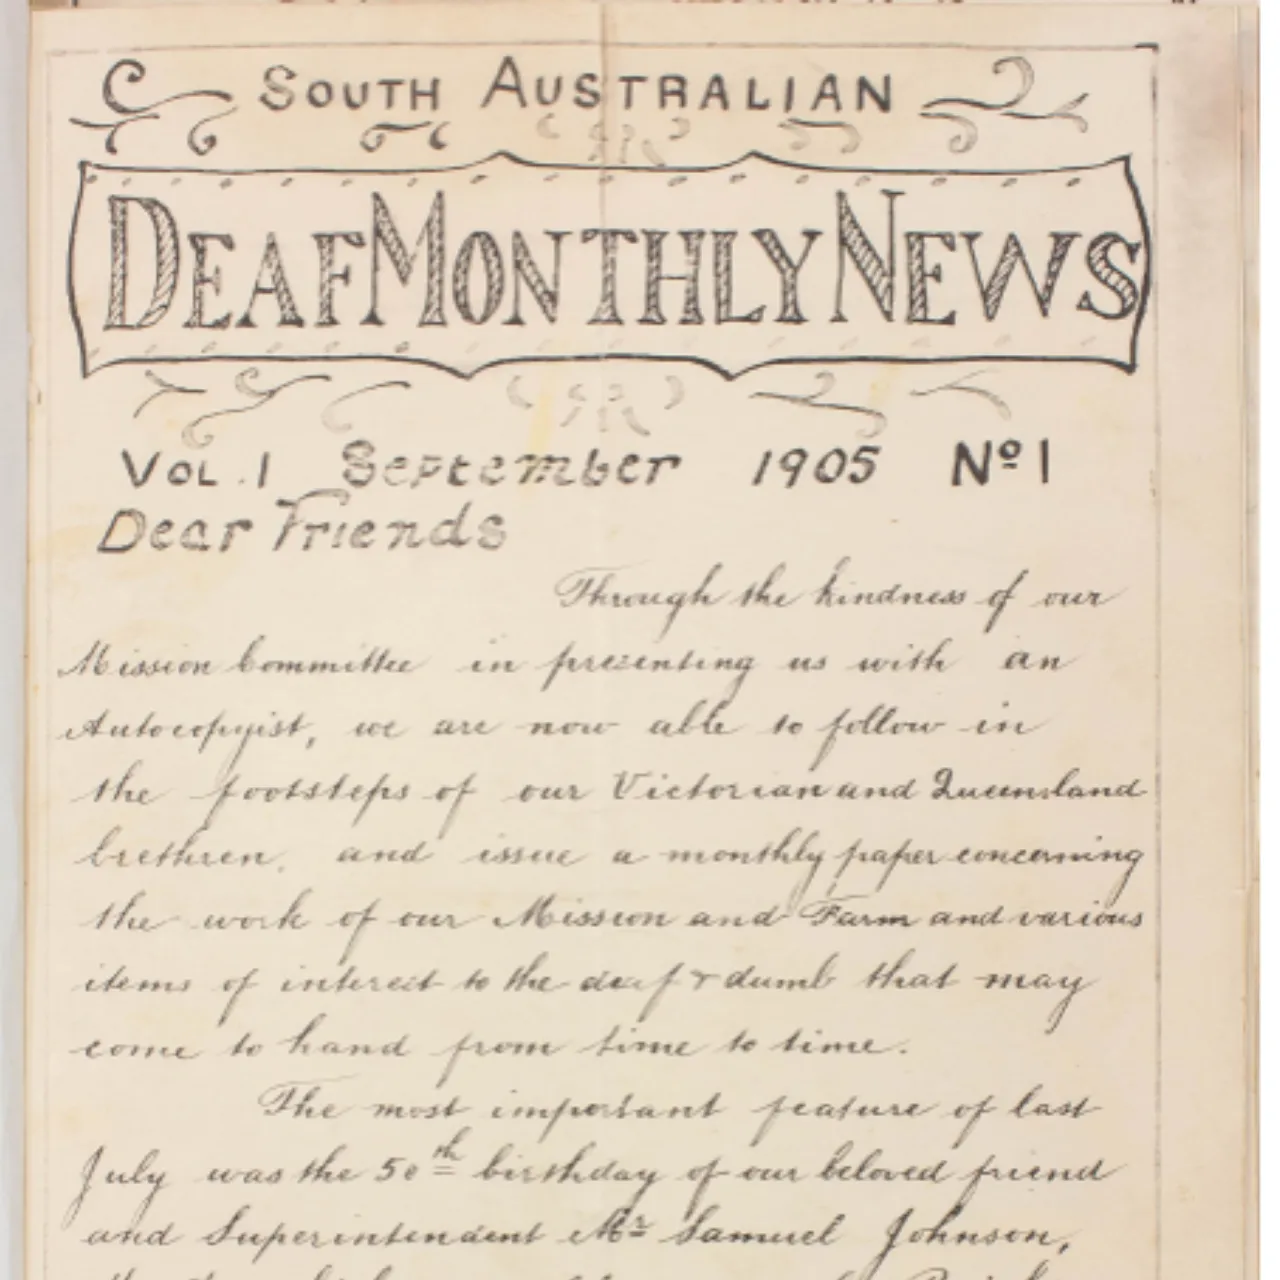 SOUTH AUSTRALIAN
DEAF MONTHLY NEWS
VOL. 1 September 1905 Nº 1
Dear Friends
Through the kindness of our
Mission Committee in presenting us with an
Autocopyist, we are now able to follow in
the footsteps of our Victorian and Queensland
brethren, and issue a monthly paper concerning
the work of our Mission and Farm and various
items of interest to the deaf & dumb that may
come to hand from time to time.
The most important feature of last
July was the 50th birthday of our beloved friend
and Superintendent Mr Samuel Johnson,